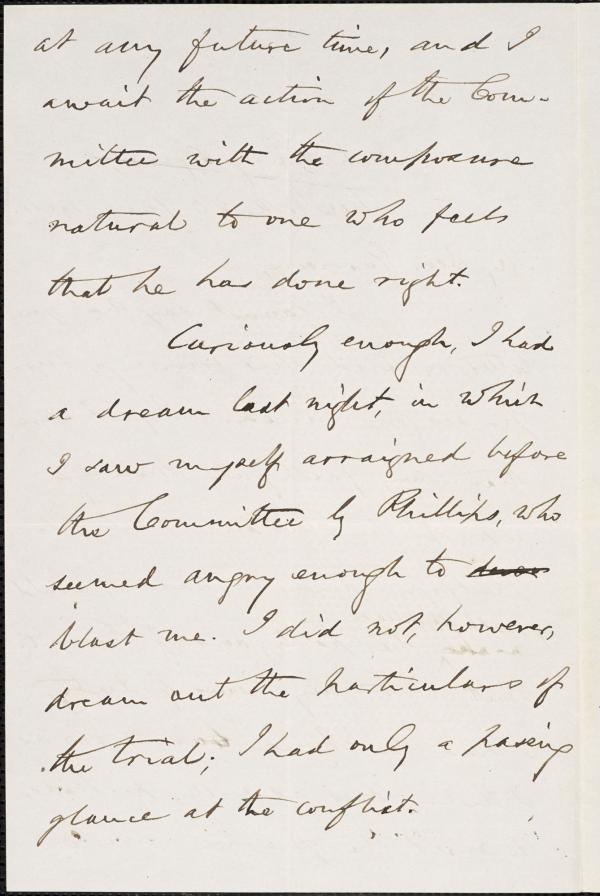 at any future time, and I
await the action of the Com-
mittee with the composure
natural to one who feels
that he has done right.
Curiously enough, I had
a dream last night, in which
I saw myself arraigned before
the Committee by Phillips, who
seemed angry enough to
blast me. I did not, however,
dream out the particulars of
the trial; I had only a passing
glance at the conflict.